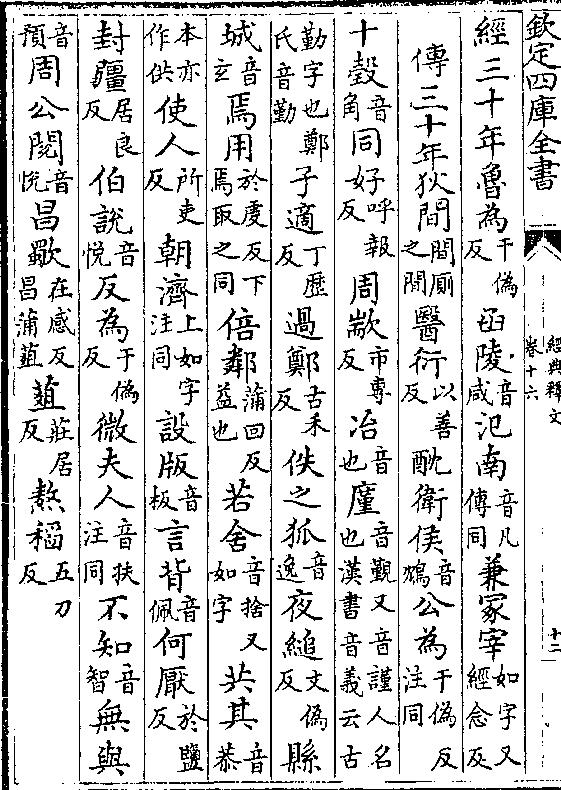 欽定四庫全書
經典釋文
卷十六
十二
經三十年魯為于偽反函陵音咸氾南音凡傳同兼冢宰如字又經念反
傳三十年狄間間厠之間醫衍以善反酖衛侯音鴆公為于偽反注同
十瑴音角同好呼報反周歂市專反冶音也廑音覲又音謹人名也漢書音義云古
勤字也鄭氏音勤子適丁歷反過鄭古禾反佚之狐音逸夜縋丈偽反縣
城音玄焉用於虔反下焉取之同倍鄰蒲回反益也若舍音捨又如字共其音恭
本亦作供使人所吏反朝濟上如字注同設版音板言背音佩何厭於鹽反
封疆居良反伯說音悅反為于偽反微夫人音扶注同不知音智無與
音預周公閱音悅昌歜在感反昌蒲葅葅莊居反熬稻五刀反